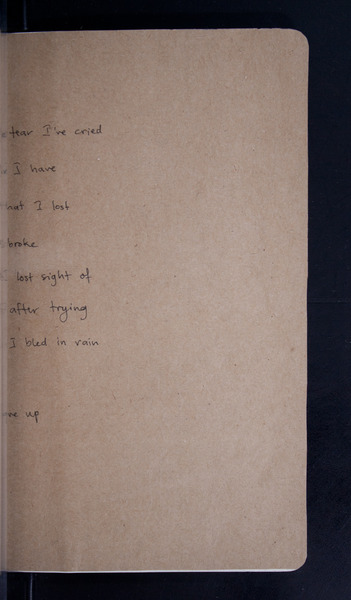 tear I've cried
I have
that I lost
broke
lost sight of
after trying
I bled in rain
up